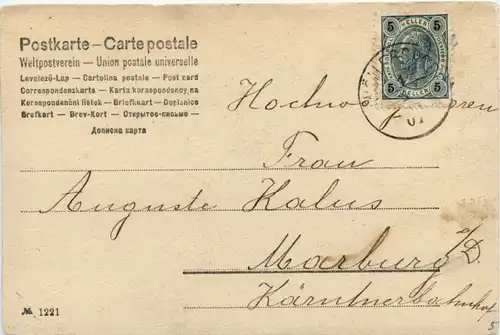 Postkarte – Carte postale
Weltpostverein – Union postale universelle
Levelező-Lap – Cartolina postale – Post card
Correspondenzkarte – Karta korespondency.na
Korespondenční lístek – Briefkaart – Dopisnice
Brefkort – Brev-Kort – Открытое-письмо –
Дописна карта
5 HELLER 5
5 HELLER 5
01
Hochwohlgeboren
Frau
Auguste Kalus
Marburg a/D.
Kärntnerbahnhof
№ 1221
5